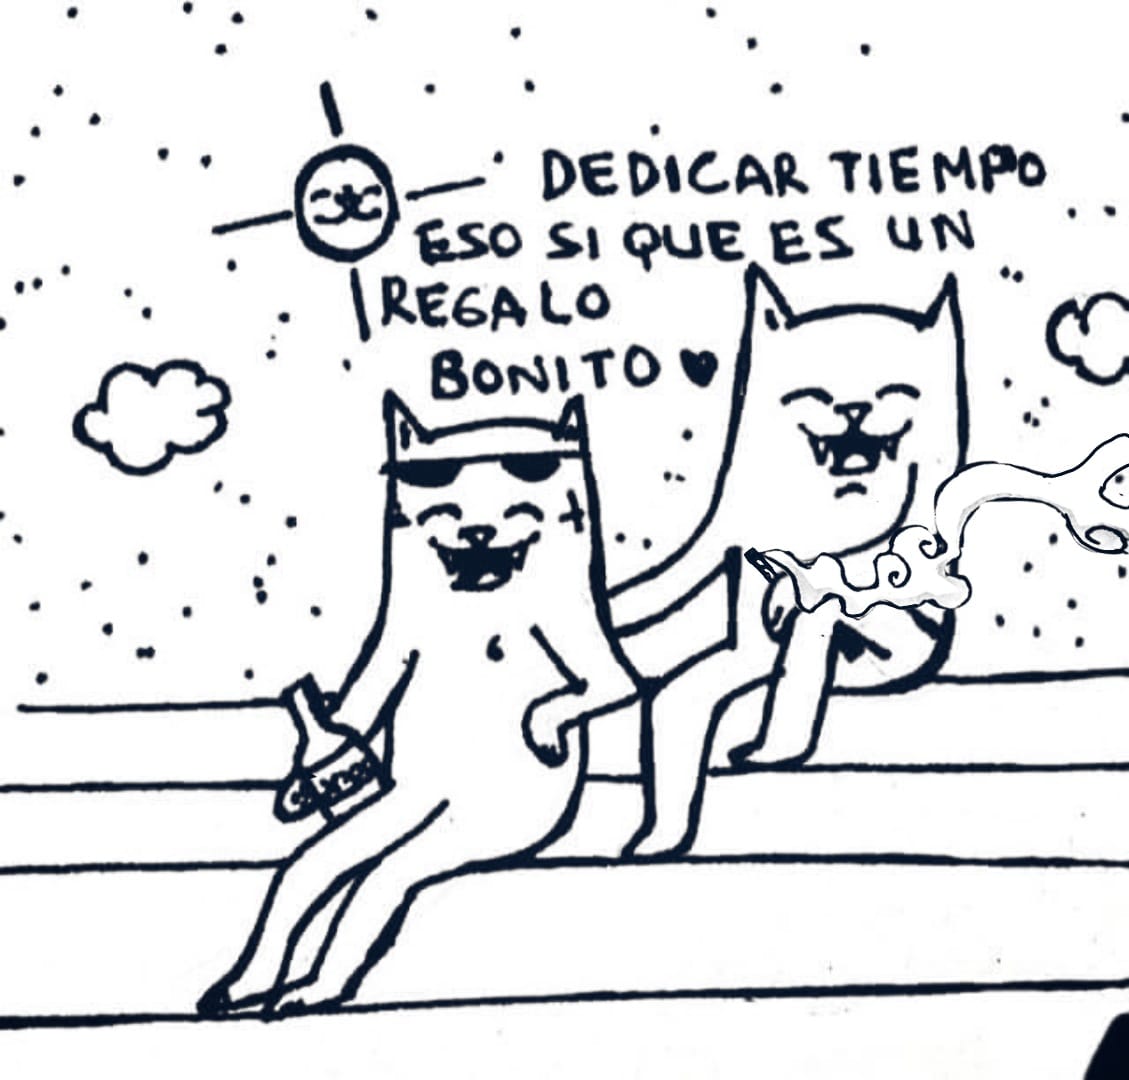 DEDICAR TIEMPO
ESO SI QUE ES UN
REGALO
BONITO ♥